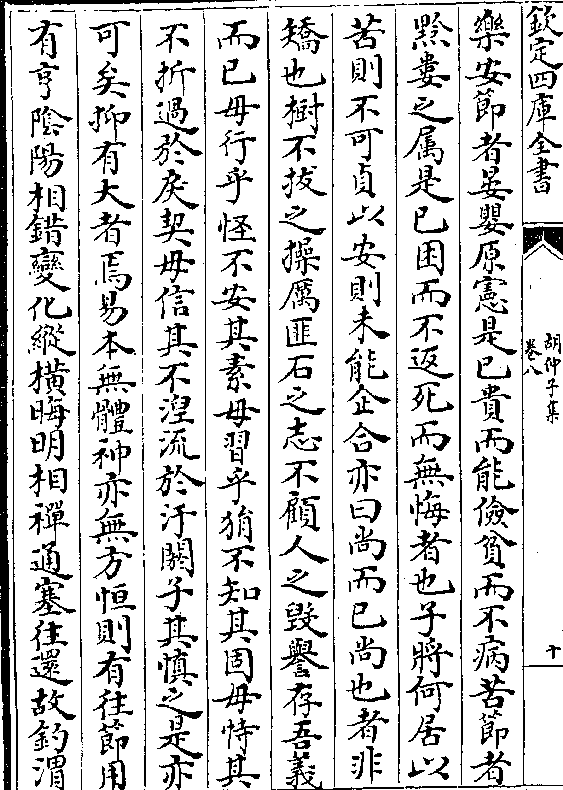 欽定四庫全書
胡仲子集
卷八
十
樂安節者晏嬰原憲是已貴而能儉貧而不病苦節者
黔婁之属是已困而不返死而無悔者也子將何居以
苦則不可貞以安則未能企合亦曰尚而已尚也者非
矯也樹不拔之操厲匪石之志不顧人之毀譽存吾義
而已毋行乎怪不安其素毋習乎狷不知其固毋恃其
不折過於戾契毋信其不湼流於汙闗子其慎之是亦
可矣抑有大者焉易本無體神亦無方恒則有往節用
有亨陰陽相錯變化縱橫晦明相禪通塞往還故釣渭